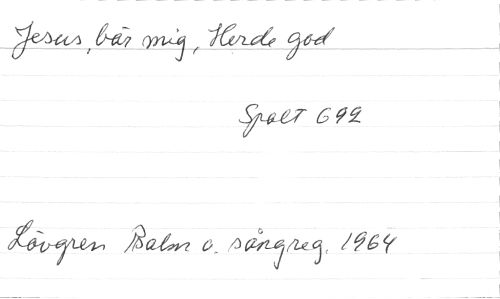 Jesus, bär mig, Herde god
Spalt 692
Lövgren Psalm o. sångreg. 1964